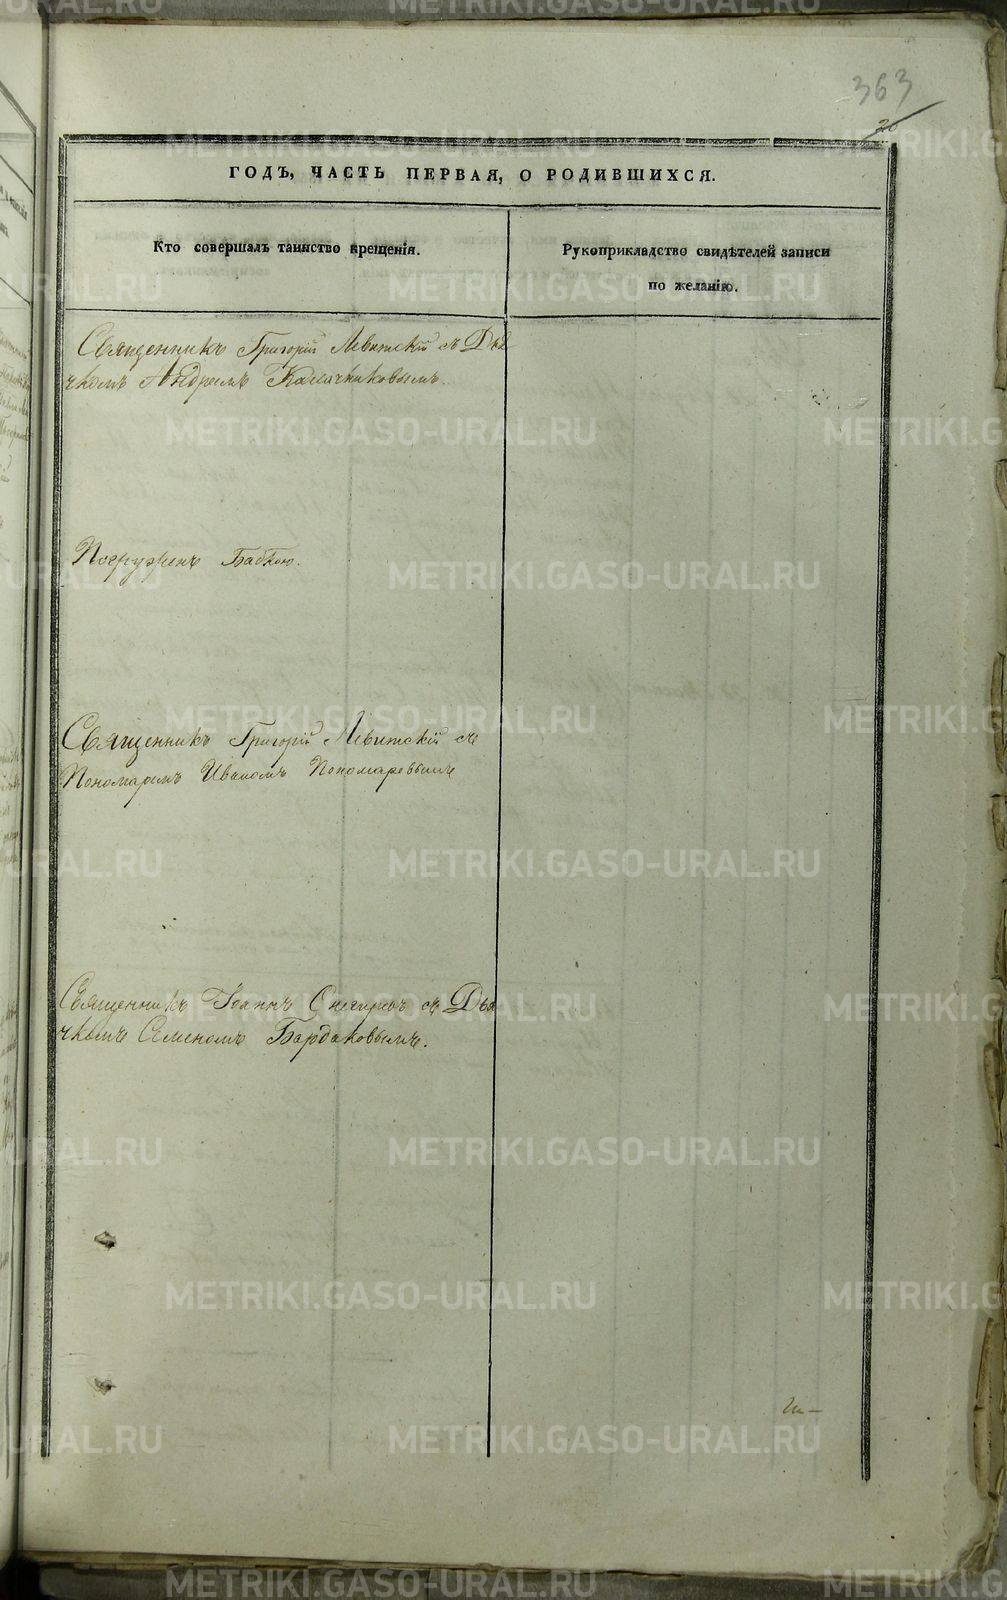 363
20
ГОДЪ, ЧАСТЬ ПЕРВАЯ, О РОДИВШИХСЯ.
Кто совершалъ таинство крещенія.
Рукоприкладство свидѣтелей записи
по желанію.
Священникъ Григорій Левитскій съ Дья
чкомъ Андреемъ Калачниковымъ.
Погруженъ Бабкою.
Священникъ Григорій Левитскій съ
Пономаремъ Иваномъ Пономаревымъ
Священникъ Іоаннъ Снегиревъ съ Дья
чкомъ Семеномъ Бардаковымъ.
METRIKI.GASO-URAL.RU